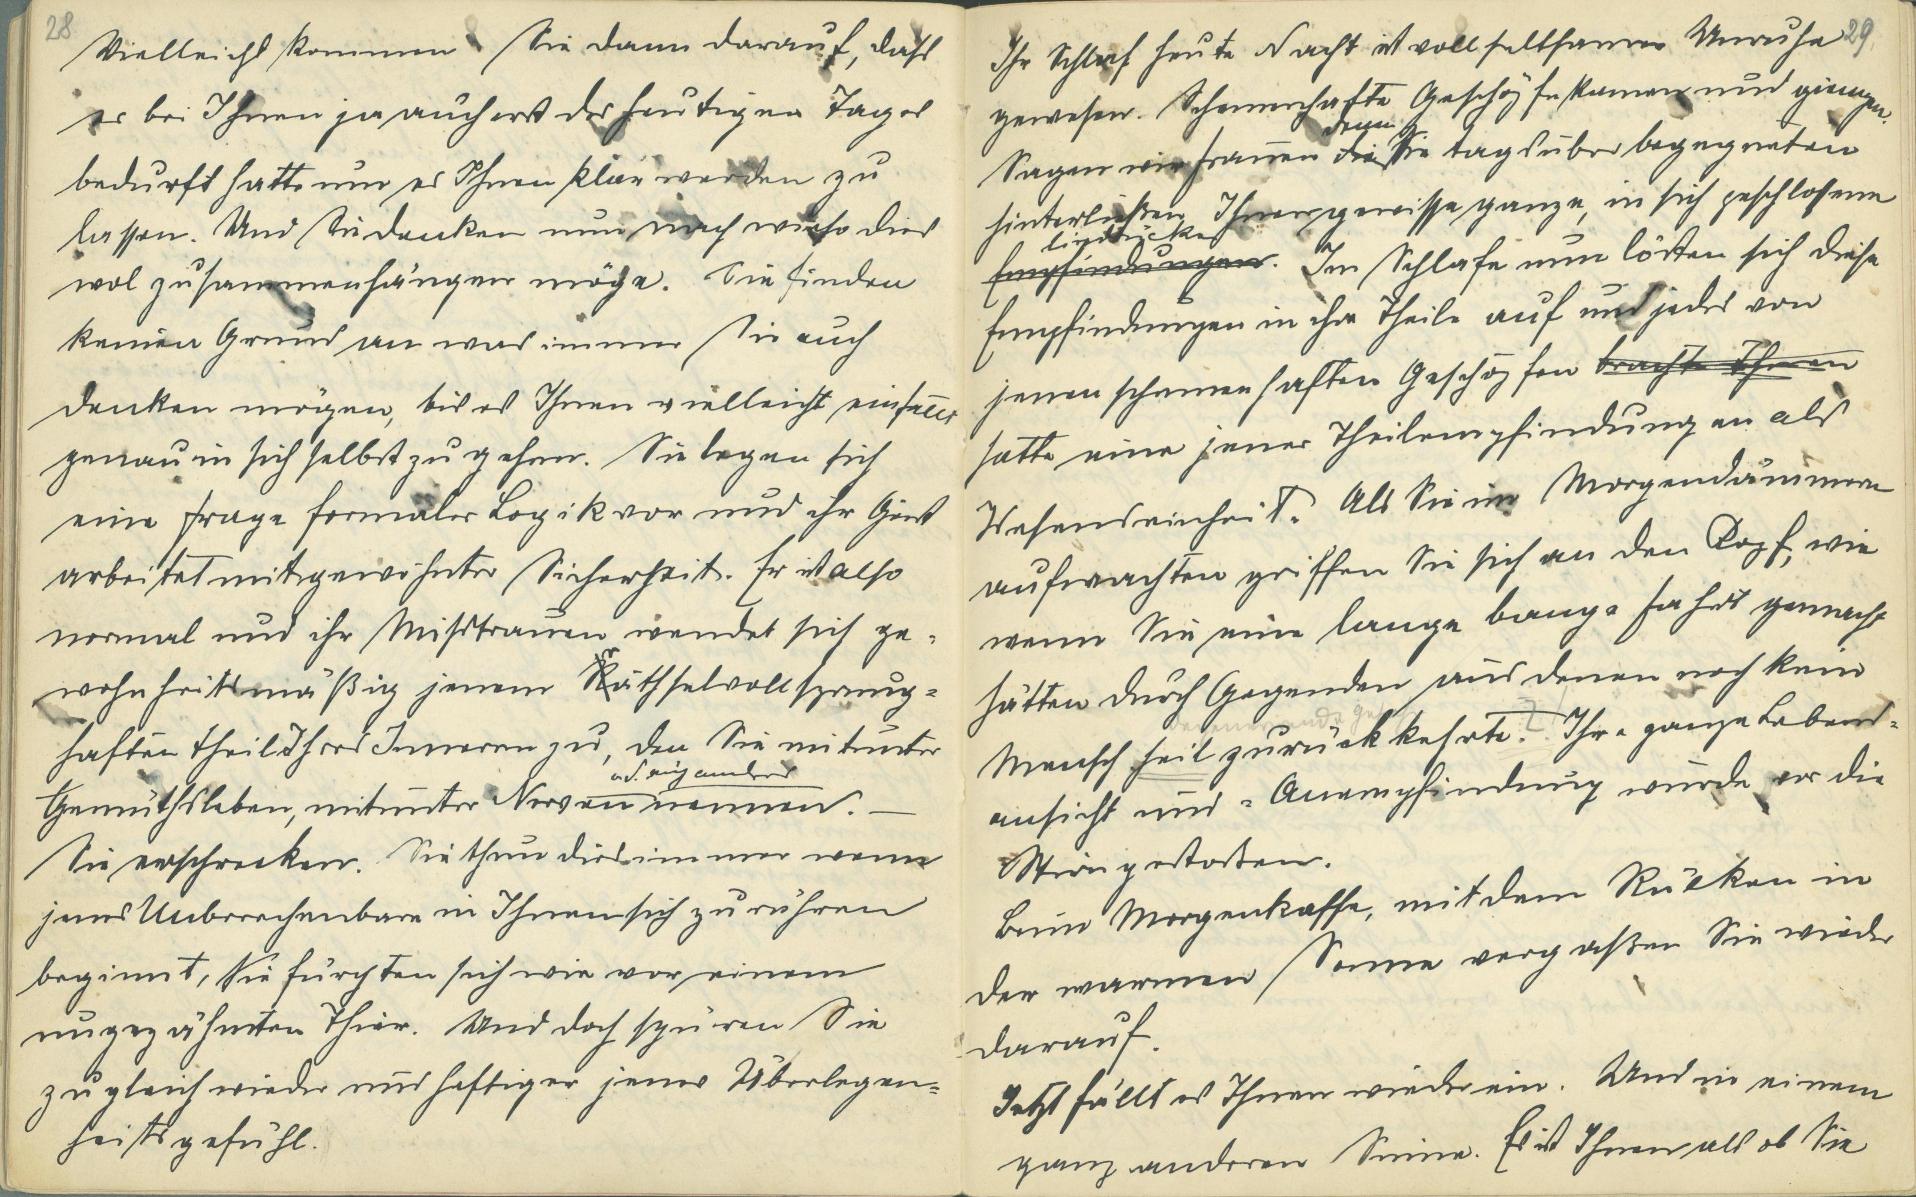 28
Vielleicht kommen Sie dann darauf, dass
es bei Ihnen ja auch erst des heutigen Tages
bedurft hatte um es Ihnen klar werden zu
lassen. Und Sie denken nun nach wieso dies
wol zusammenhängen möge. Sie finden
keinen Grund an was immer Sie auch
denken mögen, bis es Ihnen vielleicht einfällt
genau in sich selbst zu gehen. Sie legen sich
eine Frage formaler Logik vor und ihr Geist
arbeitet mit gewohnter Sicherheit. Er ist also
normal und ihr Misstrauen wendet sich ge-
wohnheitsmäßig jenem Räthselvoll sprung-
haften Theil Ihres Inneren zu, den Sie mitunter
od. auch anders
Gemüthsleben, mitunter Nerven nennen. —
Sie erschrecken. Sie thun dies immer wenn
jenes Unberechenbare in Ihnen sich zu rühren
beginnt, Sie fürchten sich wie vor einem
ungezähmten Thier. Und doch spüren Sie
zugleich wieder um so heftiger jenes Überlegen-
heitsgefühl.
29
Ihr Schlaf heute Nacht ist voll seltsamer Unruhe
gewesen. Schemenhafte Geschöpfe kamen und giengen.
denen
Sagen wir Frauen die Sie tagsüber begegneten
hinterließen Ihnen gewisse ganze, in sich geschlossene
Eindrücke
Empfindungen. Im Schlafe nun lösten sich diese
Empfindungen in ihre Theile auf und jedes von
jenen schemenhaften Geschöpfen brachte Ihnen
hatte eine jener Theilempfindungen als
Wesenseinheit. Als Sie im Morgendämmern
aufwachten griffen Sie sich an den Kopf, wie
wenn Sie eine lange bange Fahrt gemacht
hätten durch Gegenden aus denen noch kein
Mensch heil zurückkehrte. Ihre ganze Lebens-
ansicht und -Anempfindung wurde vor die
Stirn gestoßen.
Beim Morgenkaffe, mit dem Rücken in
der warmen Sonne vergaßen Sie wieder
darauf.
Jetzt fällt es Ihnen wieder ein. Und in einem
ganz anderen Sinne. Es ist Ihnen als ob Sie